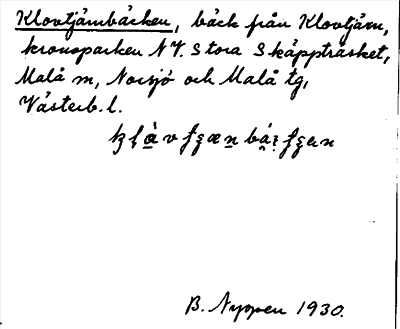 Klovtjärnbäcken, bäck från Klovtjärn,
kronoparken NV. Stora Skäppträsket,
Malå sn, Norsjö och Malå tg,
Västerb. l.
B. Nyppen 1930.